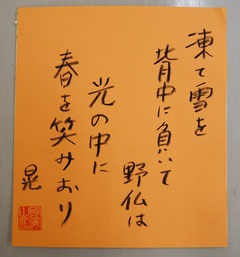 凍て雪を
背中に負いて
野仏は
光の中に
春を笑みおり
晃